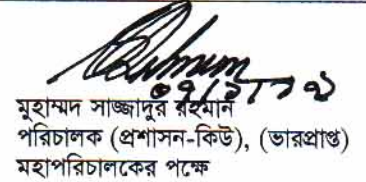 মুহাম্মদ সাজ্জাদুর রহমান
পরিচালক (প্রশাসন-কিউ), (ভারপ্রাপ্ত)
মহাপরিচালকের পক্ষে